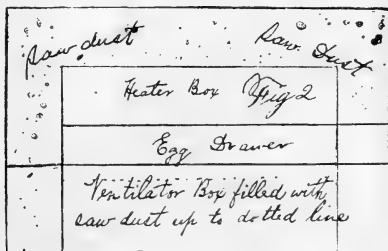 Saw dust Saw Dust
Heater Box Fig 2
Egg Drawer
Ventilator Box filled with
saw dust up to dotted line